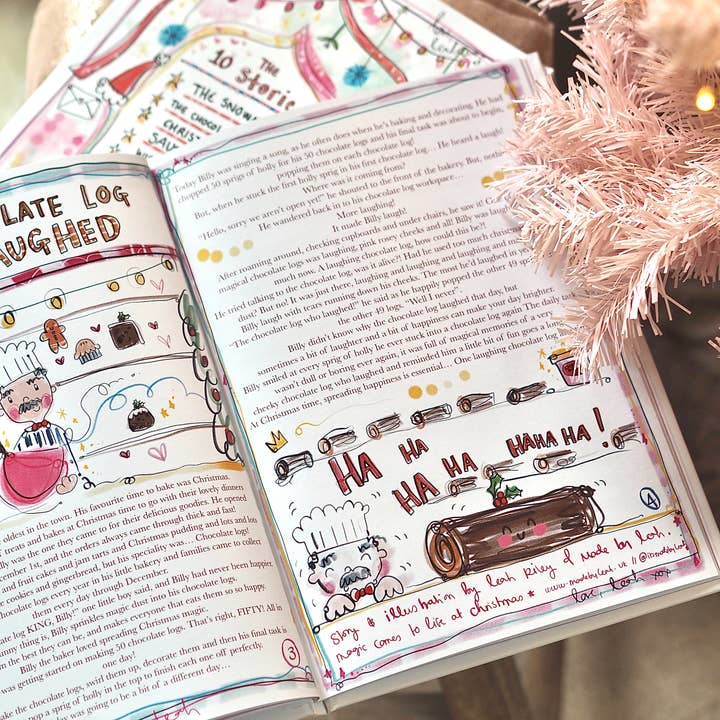 THE
10 Storie
THE SNOW
THE CHOCOL
CHRIST
SAV
LATE LOG
AUGHED
oldest in the town. His favourite time to bake was Christmas.
eats and bakes at Christmas time to go with their lovely dinners
illy was the one they came to for their delicious goodies. He opened
ember 1st, and the orders always came through thick and fast!
nd fruit cakes and jam tarts and Christmas pudding and lots and lots
e cookies and gingerbread, but his speciality was... Chocolate log!
ocolate logs every year in his little bakery and families came to collect
them every day through December.
ate log KING, Billy!" one little boy said, and Billy had never been happier.
unny thing is, Billy sprinkles magic dust into his chocolate logs.
m the best they can be, and makes everyone that eats them so so happy.
Billy the baker loved spreading Christmas magic.
was getting started on making 50 chocolate logs. That's right, FIFTY! All in
one day!
ake the chocolate logs, swirl them up, decorate them and then his final task is
pop a sprig of holly in the top to finish each one off perfectly.
day was going to be a bit of a different day...
3
Leah
Today Billy was singing a song, as he often does when he's baking and decorating. He had
chopped 50 sprigs of holly for his 50 chocolate logs and his final task was about to begin,
popping them on each chocolate log!
But, when he stuck the first holly sprig in his first chocolate log... He heard a laugh!
Where was it coming from?
"Hello, sorry we aren't open yet!" he shouted to the front of the bakery But, nothing
He wandered back in to his chocolate log workspace...
More laughing!
It made Billy laugh!
After roaming around, checking cupboards and under chairs, he saw it! C
magical chocolate logs was laughing, pink rosey cheeks and all! Billy was laugh
much now. A laughing chocolate log, how could this be?!
He tried talking to the chocolate log, was it alive?! Had he used too much christm
dust? But no! It was just there, laughing and laughing and laughing and m
Billy laugh with tears running down his cheeks. The most he'd laughed
"The chocolate log who laughed!" he said as he happily popped the other 49 sp
the other 49 logs. "Well I never".
Billy didn't know why the chocolate log laughed that day, but
sometimes a bit of laughter and a bit of happiness can make your day brighter.
Billy smiled at every sprig of holly he ever stuck into a chocolate log again The daily task
wasn't dull or boring ever again, it was full of magical memories of a very
cheeky chocolate log who laughed and reminded him a little bit of fun goes a long
At Christmas time, spreading happiness is essential... One laughing chocolate log
HA HA
HA HA HAHA HA!
4
Story & illustration by Leah Riley of Made by Leah.
magic comes to life at christmas
www.madebyleah.uk // @imadebyleah
love, Leah xox